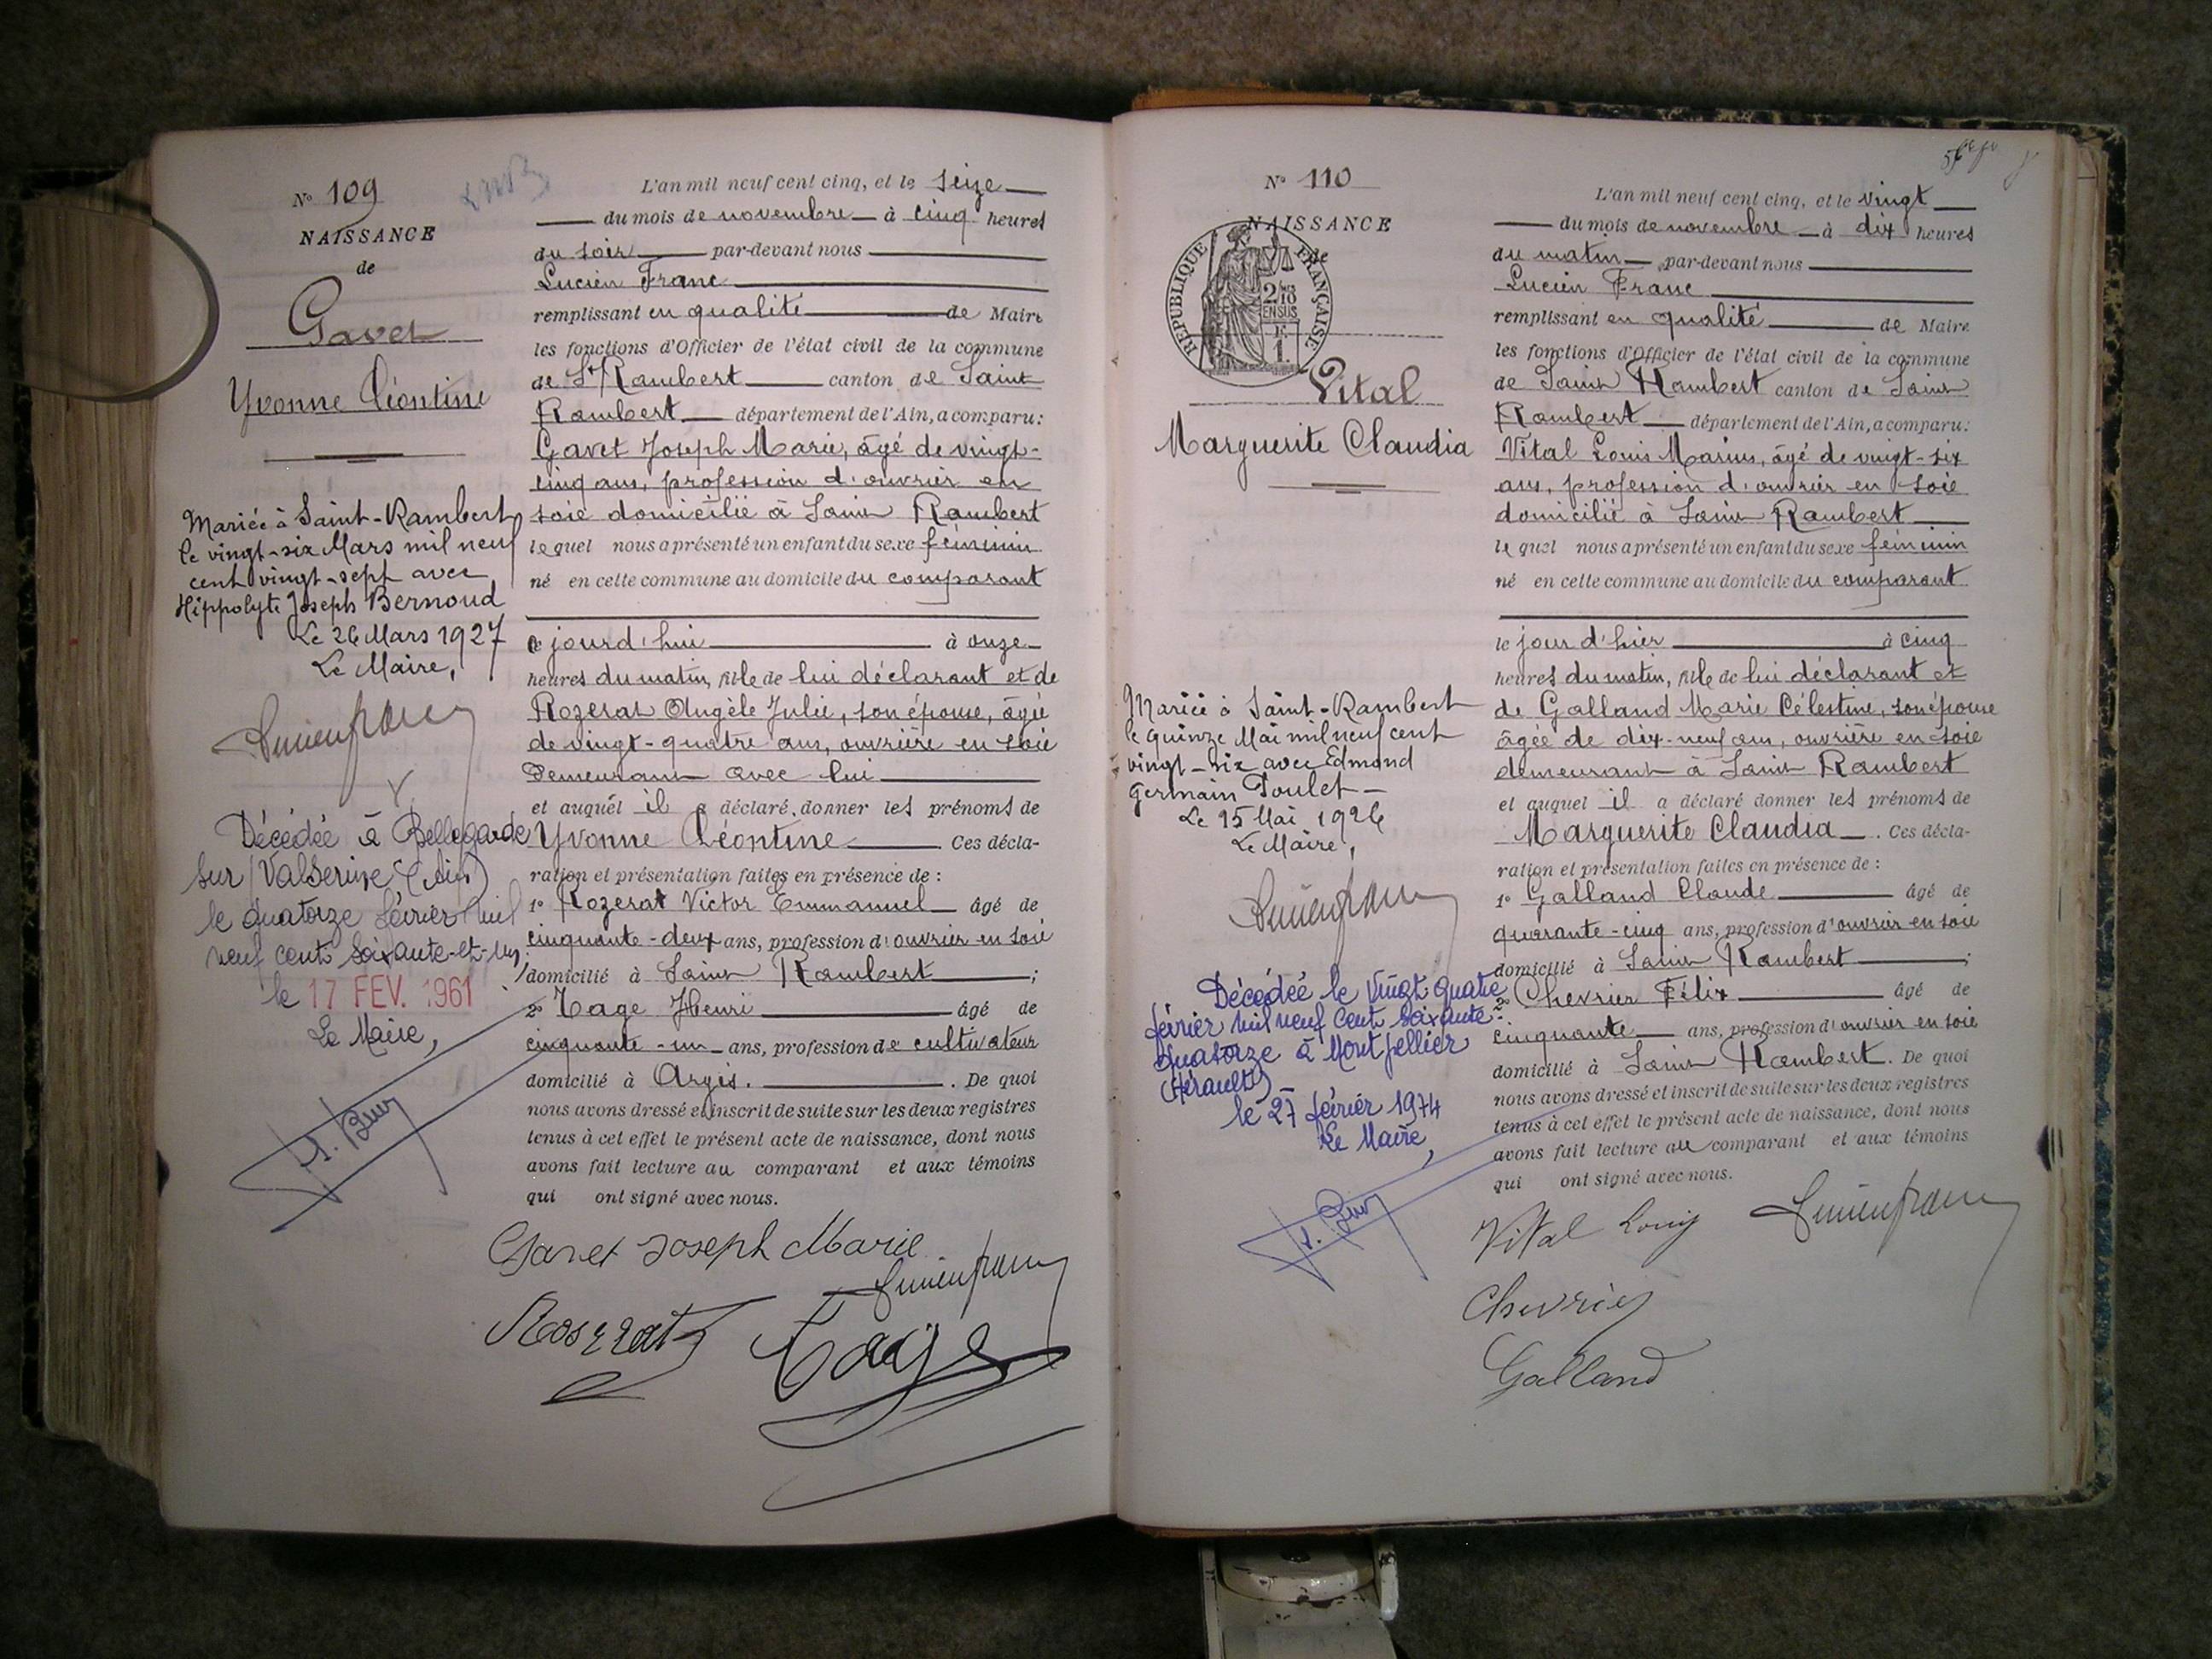 N° 109
NAISSANCE
de
Gavet
Yvonne Léontine
Mariée à Saint-Rambert
le vingt-six Mars mil neuf
cent vingt-sept avec
Hippolyte Joseph Bernoud
Le 26 Mars 1927
Le Maire,
Lucien franc
Décédée à Bellegarde
sur Valserine (Ain)
le quatorze février mil
neuf cent soixante-et-un
le 17 FEV. 1961
Le Maire,
L'an mil neuf cent cinq, et le seize
du mois de novembre à cinq heures
du soir par-devant nous
Lucien Franc
remplissant en qualité de Maire
les fonctions d'Officier de l'état civil de la commune
de St Rambert canton de Saint
Rambert département de l'Ain, a comparu:
Gavet Joseph Marie, âgé de vingt-
cinq ans, profession d'ouvrier en
soie domicilié à Saint Rambert
lequel nous a présenté un enfant du sexe féminin
né en cette commune au domicile du comparant
ce jourd'hui à onze
heures du matin, fille de lui déclarant et de
Rozerat Angèle Julie, son épouse, âgée
de vingt-quatre ans, ouvrière en soie
demeurant avec lui
et auquel il a déclaré donner les prénoms de
Yvonne Léontine. Ces décla-
ration et présentation faites en présence de :
1° Rozerat Victor Emmanuel âgé de
cinquante-deux ans, profession d'ouvrier en soie
domicilié à Saint Rambert ;
2° Tage Henri âgé de
cinquante-un ans, profession de cultivateur
domicilié à Argis. . De quoi
nous avons dressé et inscrit de suite sur les deux registres
tenus à cet effet le présent acte de naissance, dont nous
avons fait lecture au comparant et aux témoins
qui ont signé avec nous.
Gavet Joseph Marie
Lucien franc
Roserat
Tage
N° 110
NAISSANCE
de
RÉPUBLIQUE FRANÇAISE
2/10
EN SUS
F
1.
Vital
Marguerite Claudia
Mariée à Saint-Rambert
le quinze Mai mil neuf cent
vingt-six avec Edmond
Germain Poulet
Le 15 Mai 1926
Le Maire,
Lucien franc
Décédée le vingt quatre
février mil neuf cent soixante-
quatorze à Montpellier
(Hérault)
le 27 février 1974
Le Maire,
L'an mil neuf cent cinq, et le vingt
du mois de novembre à dix heures
du matin par-devant nous
Lucien Franc
remplissant en qualité de Maire
les fonctions d'Officier de l'état civil de la commune
de Saint Rambert canton de Saint
Rambert département de l'Ain, a comparu:
Vital Louis Marius, âgé de vingt-six
ans, profession d'ouvrier en soie
domicilié à Saint Rambert
lequel nous a présenté un enfant du sexe féminin
né en cette commune au domicile du comparant
le jour d'hier à cinq
heures du matin, fille de lui déclarant et
de Galland Marie Célestine, son épouse
âgée de dix-neuf ans, ouvrière en soie
demeurant à Saint Rambert
et auquel il a déclaré donner les prénoms de
Marguerite Claudia . Ces décla-
ration et présentation faites en présence de :
1° Galland Claude âgé de
quarante-cinq ans, profession d'ouvrier en soie
domicilié à Saint Rambert ;
2° Chevrier Félix âgé de
cinquante ans, profession d'ouvrier en soie
domicilié à Saint Rambert. De quoi
nous avons dressé et inscrit de suite sur les deux registres
tenus à cet effet le présent acte de naissance, dont nous
avons fait lecture au comparant et aux témoins
qui ont signé avec nous.
Vital Louis
Lucien franc
Chevrier
Galland